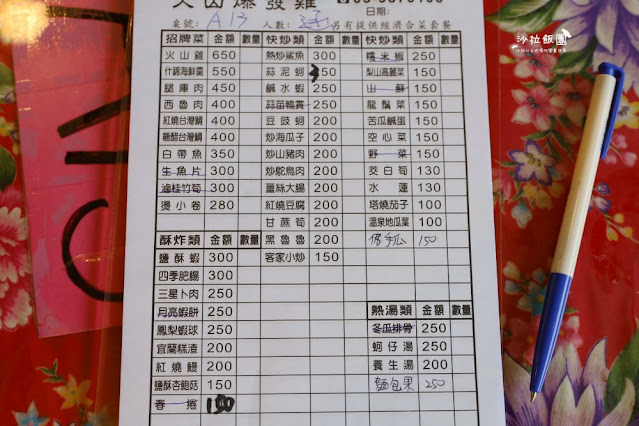 火山爆發雞
桌號: A13 人數: 另有提供經濟合菜套餐
日期:
招牌菜 金額 數量 快炒類 金額 數量 快炒類 金額 數量
火山雞 650 熱炒鯊魚 300 糯米椒 250
什錦海鮮羹 550 蒜泥蚵 350 梨山高麗菜 150
腿庫肉 450 鹹水蝦 250 山蘇 150
西魯肉 400 蒜苗鵝賞 250 龍鬚菜 150
紅燒台灣鯛 400 豆豉蚵 200 苦瓜鹹蛋 150
糖醋台灣鯛 400 炒海瓜子 200 空心菜 150
白帶魚 350 炒山豬肉 200 野菜 150
生魚片 300 炒鴕鳥肉 200 茭白筍 130
滷桂竹筍 300 薑絲大腸 200 水蓮 130
燙小卷 280 紅燒豆腐 200 塔燒茄子 100
甘蔗筍 200 溫泉地瓜菜 100
酥炸類 金額 數量 黑魯魯 200 佛手瓜 150
鹽酥蝦 300 客家小炒 150
四季肥腸 300
三星卜肉 250
月亮蝦餅 250 熱湯類 金額 數量
鳳梨蝦球 250 冬瓜排骨 250
宜蘭糕渣 200 蚵仔湯 250
紅燒鰻 200 養生湯 200
鹽酥杏鮑菇 150 麵包果 250
春捲 150
沙拉飯團